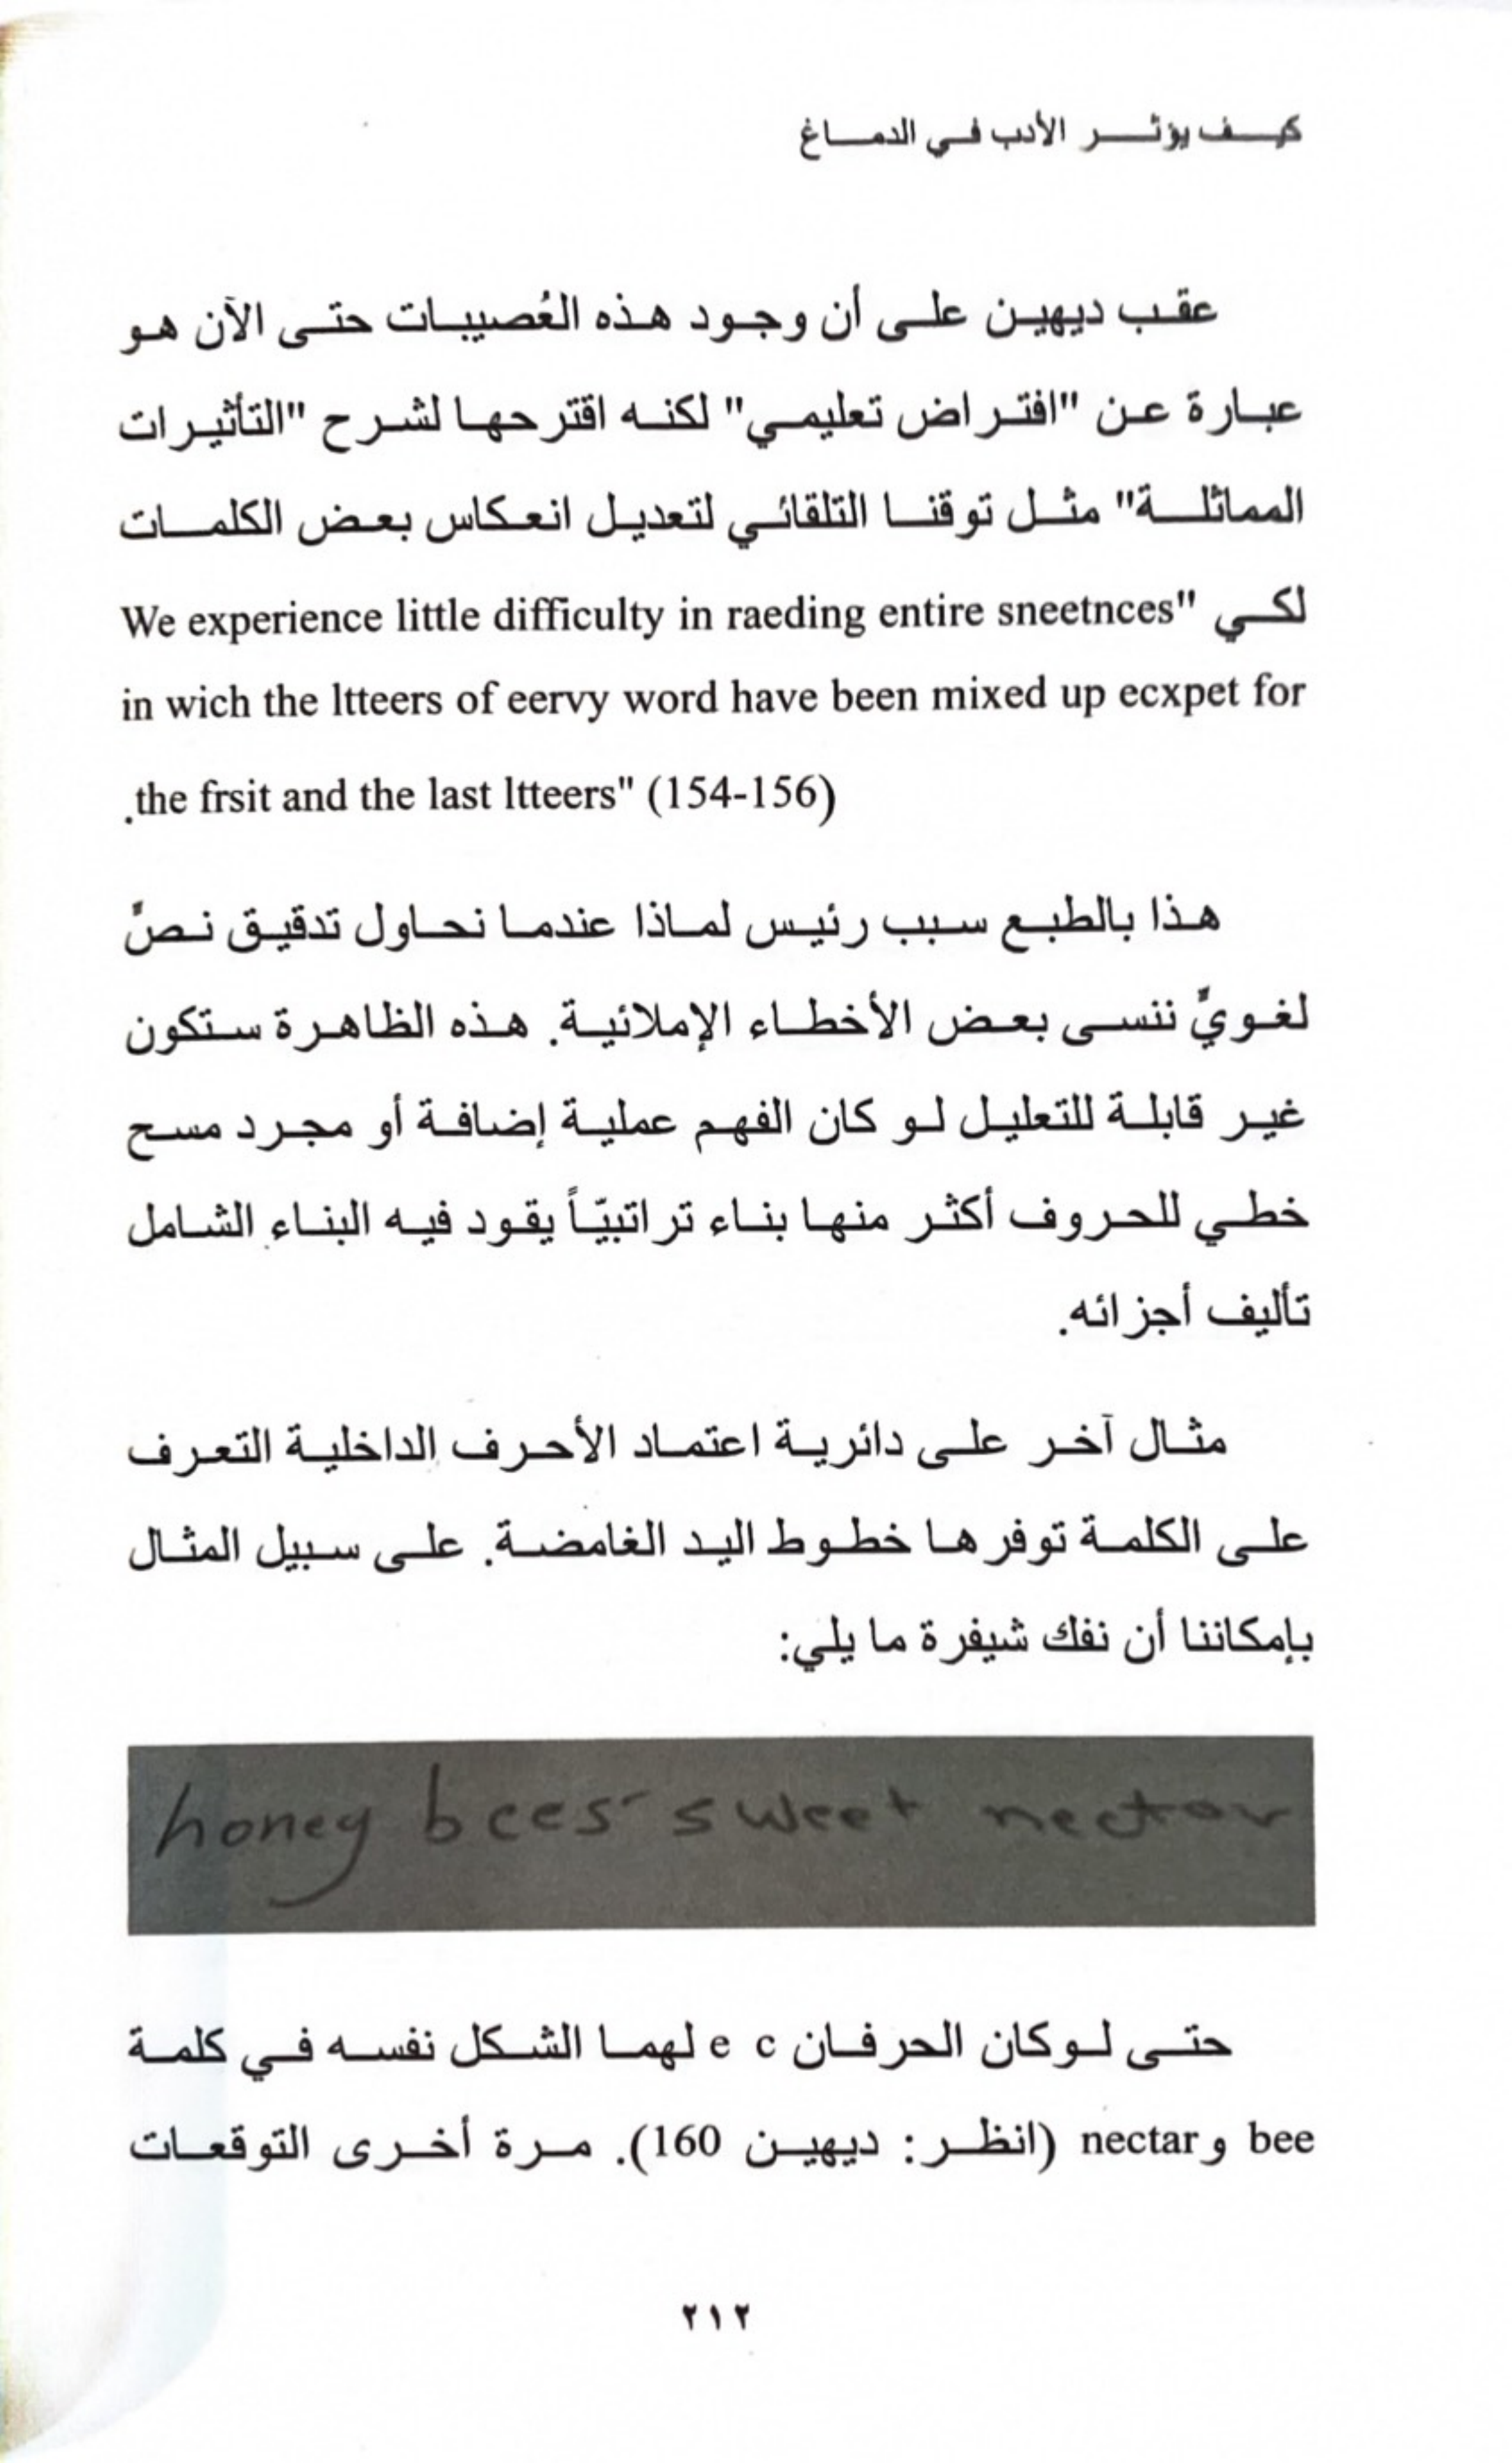 كيف يؤثر الأدب في الدماغ
عقب ديهين على أن وجود هذه العُصيبات حتى الآن هو
عبارة عن "افتراض تعليمي" لكنه اقترحها لشرح "التأثيرات
المماثلة" مثل توقنا التلقائي لتعديل انعكاس بعض الكلمات
لكي "We experience little difficulty in raeding entire sneetnces
in wich the ltteers of eervy word have been mixed up ecxpet for
the frsit and the last ltteers" (154-156).
هذا بالطبع سبب رئيس لماذا عندما نحاول تدقيق نصٍّ
لغويٍّ ننسى بعض الأخطاء الإملائية. هذه الظاهرة ستكون
غير قابلة للتعليل لو كان الفهم عملية إضافة أو مجرد مسح
خطي للحروف أكثر منها بناء تراتبيّاً يقود فيه البناء الشامل
تأليف أجزائه.
مثال آخر على دائرية اعتماد الأحرف الداخلية التعرف
على الكلمة توفرها خطوط اليد الغامضة. على سبيل المثال
بإمكاننا أن نفك شيفرة ما يلي:
honey bees' sweet nectar
حتى لوكان الحرفان e c لهما الشكل نفسه في كلمة
bee و nectar (انظر: ديهين 160). مرة أخرى التوقعات
٢١٢